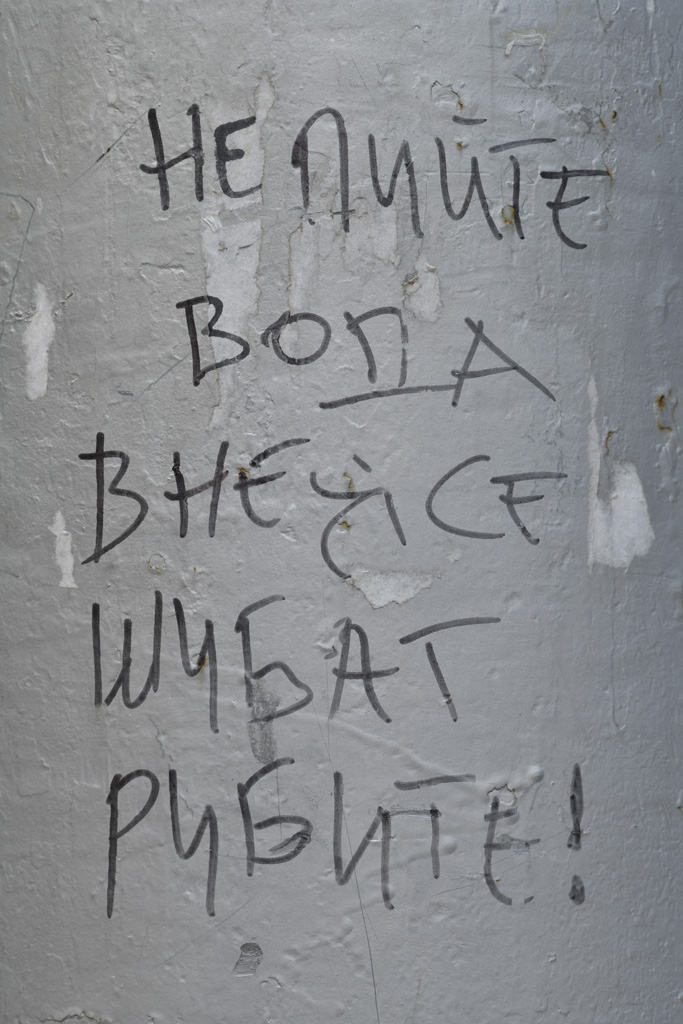 НЕ ПИЙТЕ
ВОДА
ВНЕЯ СЕ
ШИБАТ
РИБИТЕ!